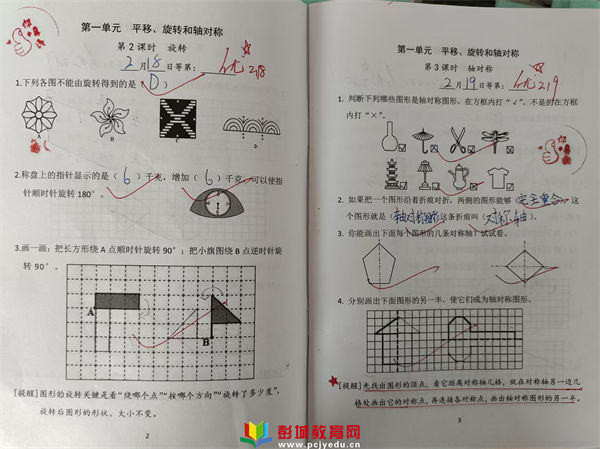 第一单元 平移、旋转和轴对称
第2课时 旋转
2月18日等第：优 2.18
1.下列各图不能由旋转得到的是（D）
A B C D
2.称盘上的指针显示的是（6）千克，增加（6）千克，可以使指
针顺时针旋转180°。
3.画一画：把长方形绕A点顺时针旋转90°；把小旗图绕B点逆时针旋
转90°。
A
B
[提醒]图形的旋转关键是看“绕哪个点”“按哪个方向”“旋转了多少度”，
旋转后图形的形状、大小不变。
2
第一单元 平移、旋转和轴对称
第3课时 轴对称
2月19日等第：优 2.19
1. 判断下列哪些图形是轴对称图形，在方框内打“√”，不是的在方框
内打“×”。
2. 如果把一个图形沿着折痕对折，两侧的图形能够（完全重合），这
个图形就是（轴对称图形）这条折痕叫（对称轴）。
3. 你能画出下面每个图形的几条对称轴？试试看。
4. 分别画出下面图形的另一半，使它们成为轴对称图形。
[提醒]先找出图形的顶点，看它距离对称轴几格，就在对称轴另一边几
格处画出它的对称点，再连接各对称点，画出轴对称图形的另一半。
3
彭城教育网
www.pcjyedu.cn